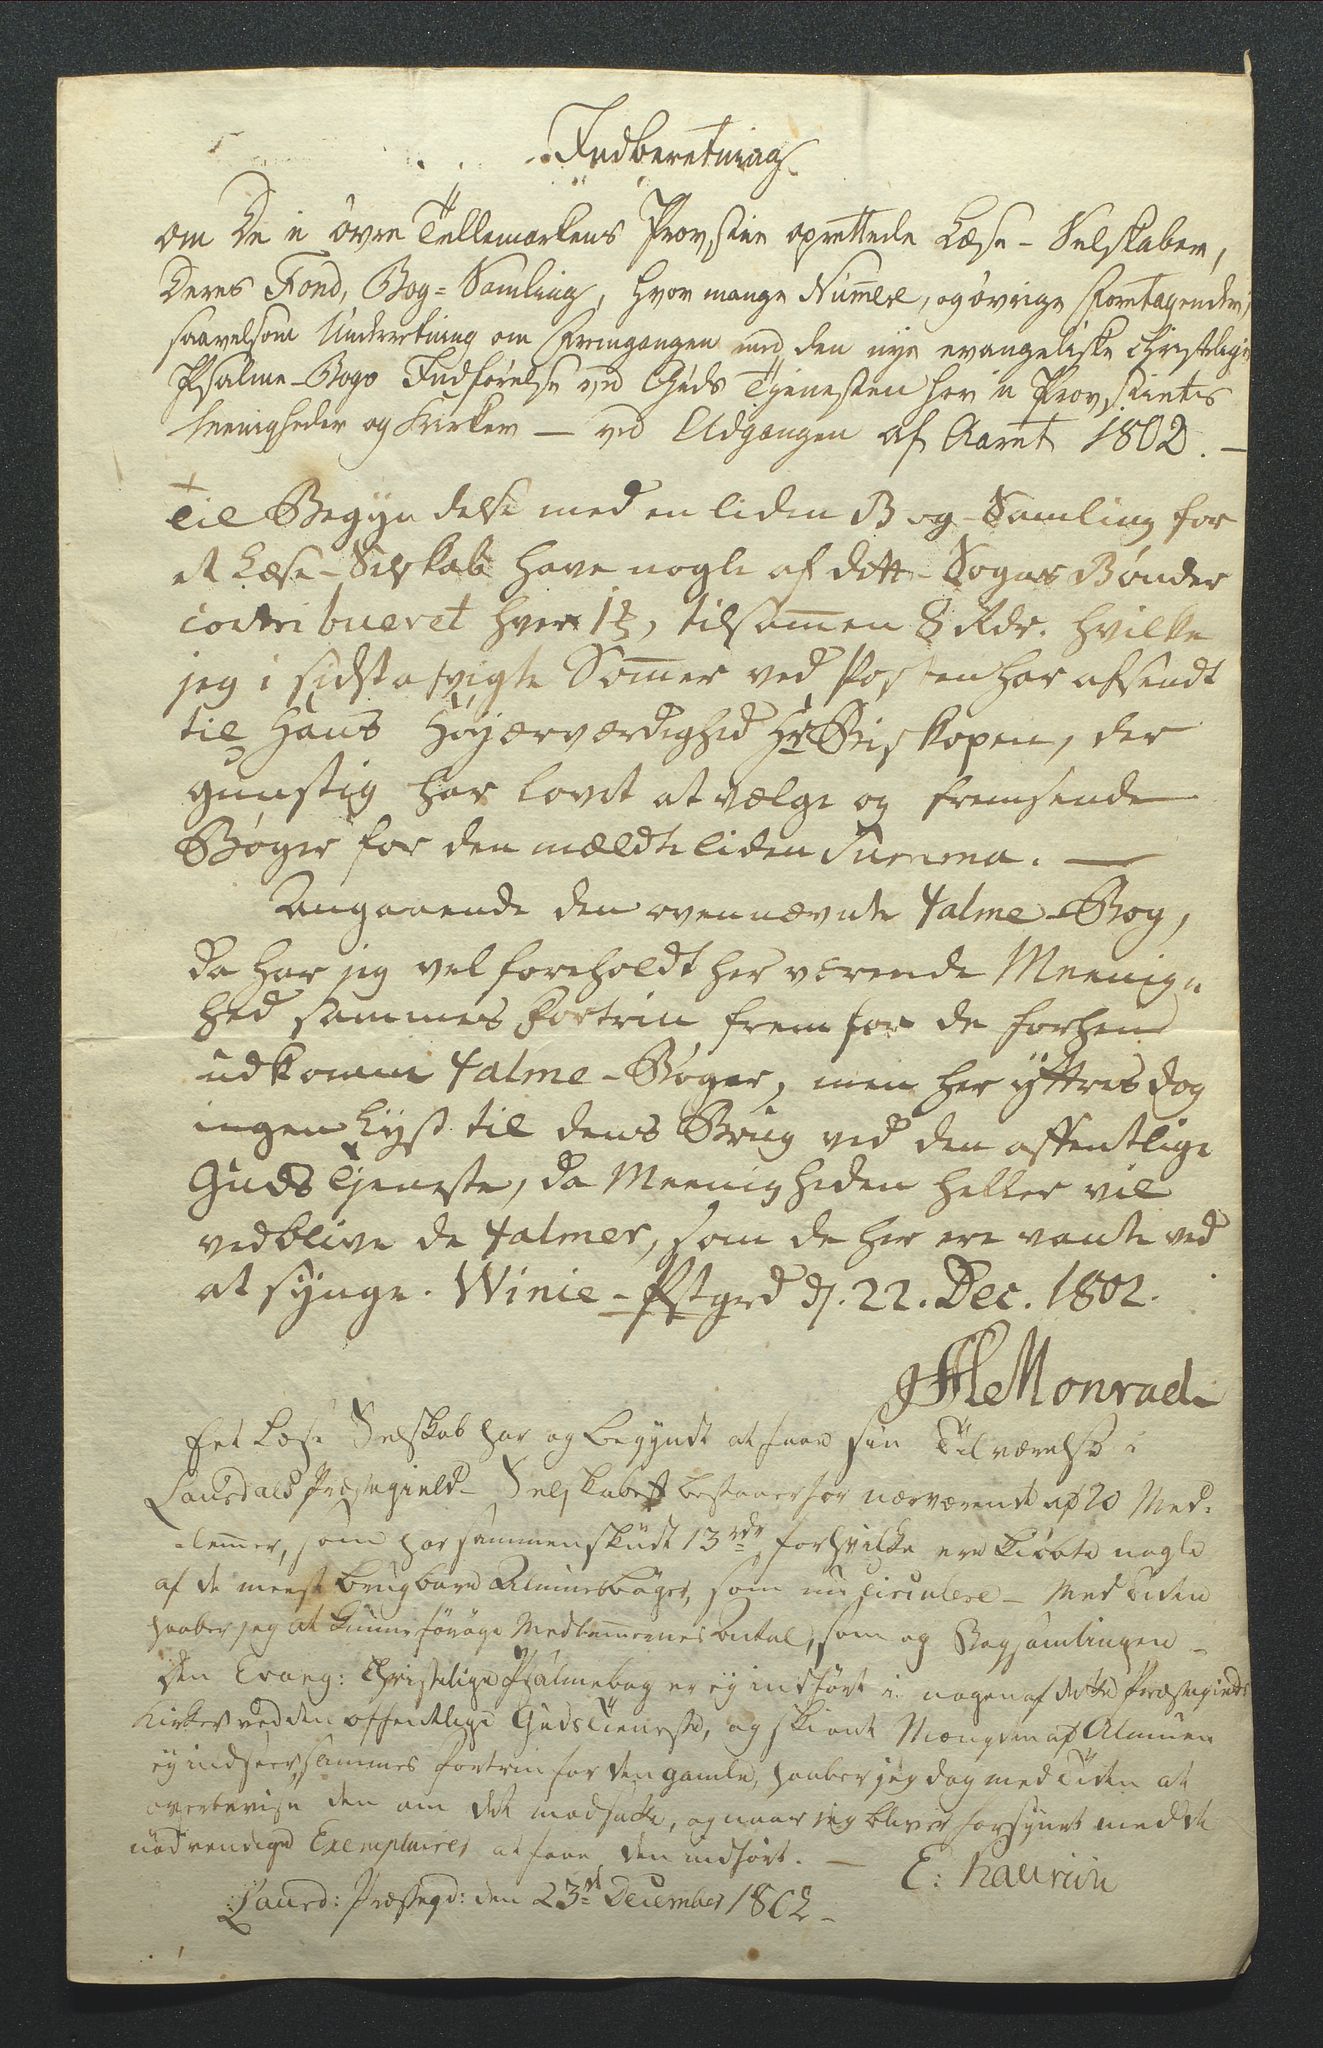 Indberetning
om De i øvre Tellemarkens Provstie oprettede Læse-Selskaber,
Deres Fond, Bog-Samling, hvor mange Numere, og øvrige Foretagender,
saavelsom Underretning om Fremgangen med den nye evangeliske christelige
Psalme-Bogs Indførelse ved Guds Tjenesten her i Provstiets
Meenigheder og Kirker — ved Udgangen af Aaret 1802. —
Til Begyndelse med en liden Bog-Samling for
et Læse-Selskab have nogle af dette Sogns Bønder
contribueret hver 1 , tilsamen 8 Rdr. hvilke
jeg i sidstafvigte Somer ved Posten har afsendt
til Hans Høyærværdighed Hr Biskopen, der
gunstig har lovet at vælge og fremsende
Bøger for den mældte liden Summa. —
Angaaende den ovennævnte ψalme-Bog,
da har jeg vel foreholdt herværende Meenig-
hed sammes Fortrin frem for de forhen
udkomne ψalme-Bøger, men her yttres dog
ingen Lyst til dens Brug ved den offentlige
Guds Tjeneste, da Meenigheden heller vil
vedblive de ψalmer, som de her ere vante ved
at synge. Winie-Pstgrd d. 22. Dec. 1802.
Monrad
Eet Læse Selskab har og begyndt at faae sin Tilværelse i
Laurdals Præstegield - Selskabet bestaaer for nærværende af 20 Med-
-lemer, som har sammenskudt 13 rdr, for hvilke ere kiøbte nogle
af de meest brugbare Almuesbøger, som nu circulere - Med Tiden
haaber jeg at kunne forøge Medlemernes Antal, som og Bogsamlingen -
Den Evang: Christelige Psalmebog er ej indført i nogen af dette Præstegields
Kirker ved den offentlige Gudstieneste, og skiønt Mængden af Almuen
ej indseer sammes fortrin for den gamle, haaber jeg dog med Tiden at
overbevise den om det modsatte, og naar jeg bliver forsynet med de
nødvendige Exemplairer at faae den indført. —
E: Kaurin
Laurd: Præstegd: den 23de December 1802 -